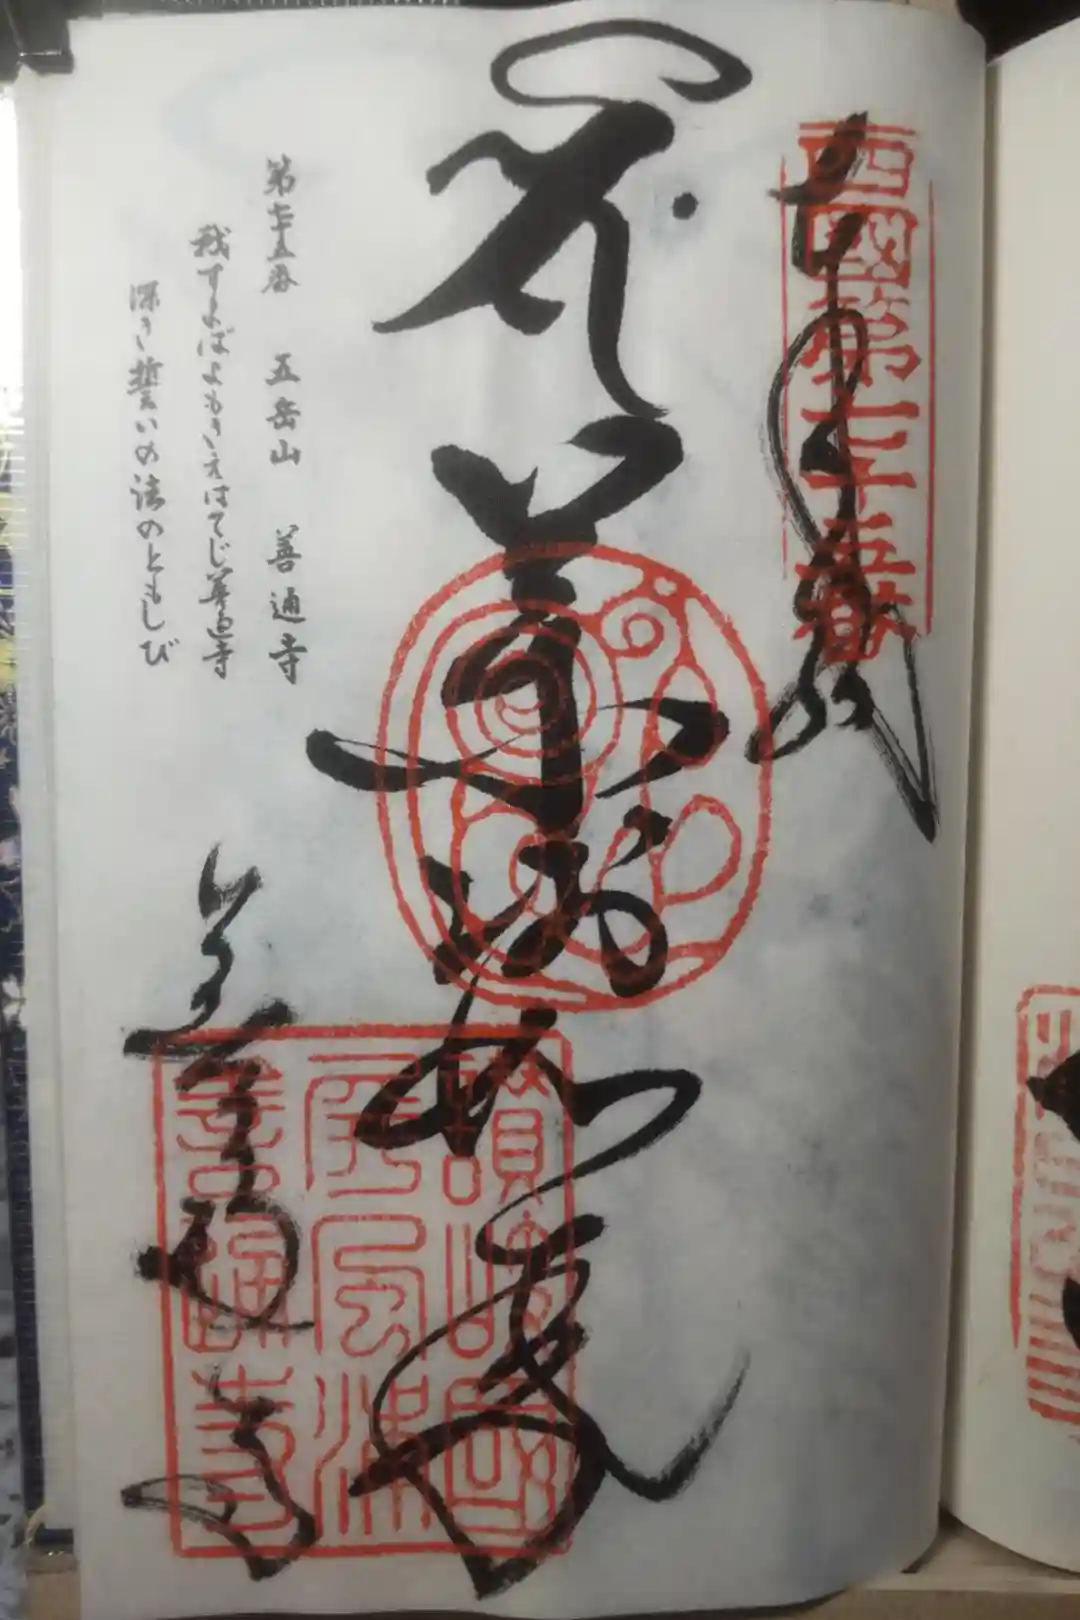 奉納
四國第七十五番
薬師如来
善通寺
讃岐國
屏風浦
善通寺
第七十五番 五岳山 善通寺
我すまばよもきえはてじ善通寺
深き誓いの法のともしび